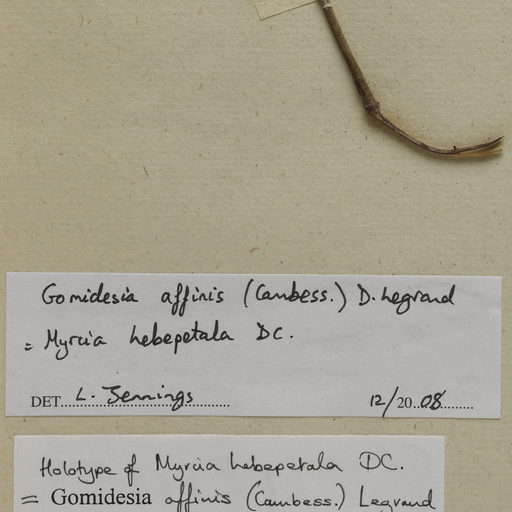 Gomidesia affinis (Cambess.) D. Legrand
= Myrcia hebepetala DC.
DET. L. Jennings 12/2008
Holotype of Myrcia hebepetala DC.
= Gomidesia affinis (Cambess.) Legrand